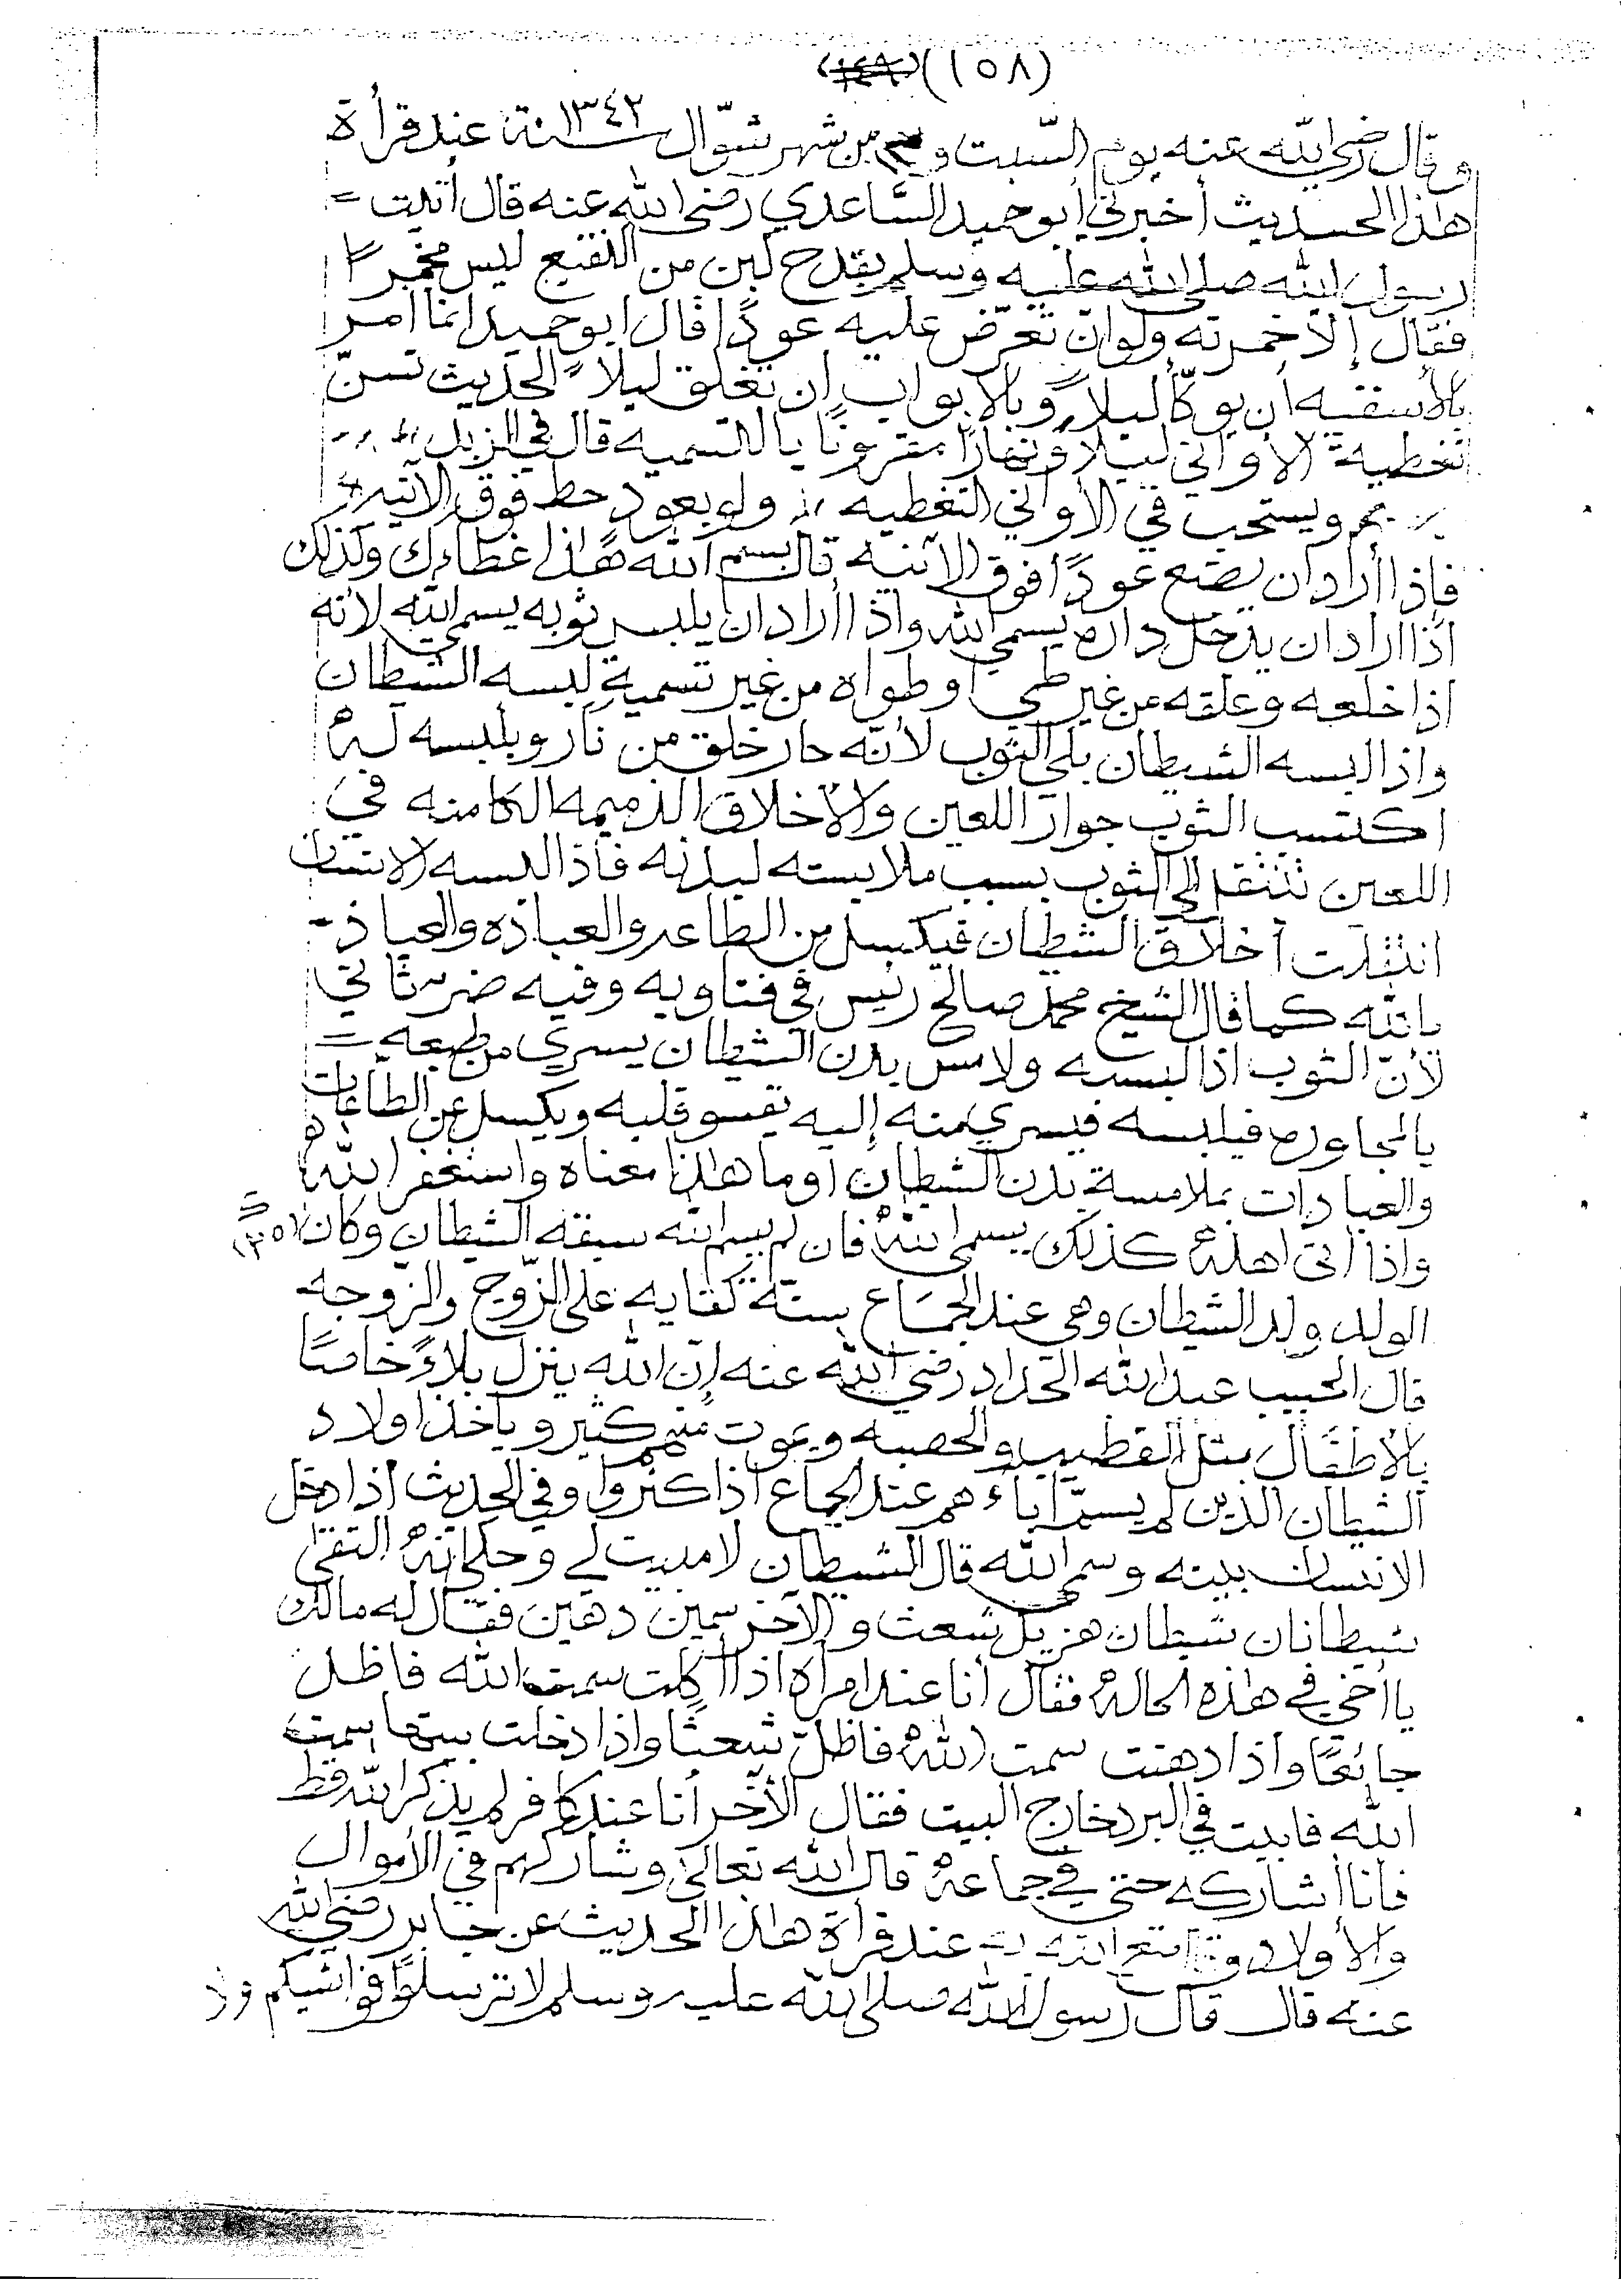 (١٥٨)
وقال رضي الله عنه يوم السبت و من شهر شوّال سنة ١٣٤٢ عند قرأة
هاذا الحديث أخبرني أبو حميد السَّاعدي رضي الله عنه قال أتيت =
رسول الله صلى الله عليه وسلم بقدح لبن من النقيع ليس مخمرًا
فقال إلا خمرته ولو ان تعرّض عليه عودًا قال ابو حميد انما امر
بالأسقيه أن يوكأ ليلاً وبالابواب ان تغلق ليلاً الحديث تسنّ
تغطية الأواني ليلا ونهارًا مقرونًا بالتسميه قال في الزبد
ويستحب في الأواني التغطيه ولو بعود حط فوق الآنيه
فإذا أراد ان يضع عودًا فوق الآنيه قال بسم الله هاذا غطاءك وكذلك
اذا اراد ان يدخل داره يسمي الله واذا أراد ان يلبس ثوبه يسمي الله لأنه
اذا خلعه وعلقه من غير طي او طواه من غير تسمية لبسه الشيطان
واذا لبسه الشيطان بلي الثوب لأنّه حار خلق من نار وبلبسه لهُ
اكتسب الثوب جوار اللعين والأخلاق الذميمه الكامنه في
اللعين تنتقل إلى الثوب بسبب ملابسته لبدنه فأذا لبسه الانسان
انتقلت أخلاق الشيطان فيكسل من الطاعه والعباده والعياذ -
بالله كما قال الشيخ محمد صالح رئيس في فتاويه وفيه ضرر ثاني
لأنّ الثوب اذا لبسه ولامس بدن الشيطان يسري من طبعه =
بالمجاوره فيلبسه فيسري منه إليه يقسو قلبه ويكسل عن الطاعات
والعبادات بملامسة بدن الشيطان او ما هاذا معناه واستغفر الله
واذا اتى اهلهُ كذلك يسمي اللهُ فان لم يسم الله سبقه الشيطان وكان
الولد ولد الشيطان وهي عند الجماع سنّة كفايه على الزّوج والزّوجه
قال الحبيب عبد الله الحداد رضي الله عنه إن الله ينزل بلاءً خاصًا
بالأطفال مثل القطيب والحصبه ويموت منهم كثير ويأخذ اولاد
الشيطان الذين لم يسمّ آباءهم عند الجماع اذا كثروا وفي الحديث اذا دخل
الانسان بيته وسمى الله قال الشيطان لا مبيت لي وحكي انهُ التقى
شيطانان شيطان هزيل شعث والآخر سمين دهين فقال له مالك
يا أخي في هاذه الحالهْ فقال أنا عند امرأه اذا أكلت سمت الله فاظل
جائعًا واذا دهنت سمت اللهُ فاظلّ شعثًا واذا دخلت بيتها سمت
الله فابيت في البرد خارج البيت فقال الآخر أنا عند كافر لم يذكر الله قط
فأنا أشاركه حتى في جماعهْ قال الله تعالى وشاركهم في الأموال
والأولاد وقال متع الله به عند قرأة هاذا الحديث عن جابر رضي الله
عنه قال قال رسول الله صلى الله عليه وسلم لا ترسلوا فواشيكم